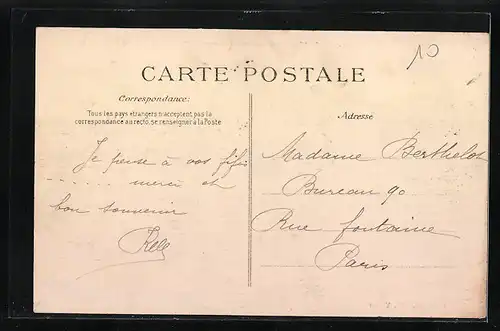 10
CARTE POSTALE
Correspondance:
Tous les pays étrangers n'acceptent pas la
correspondance au recto, se renseigner à la Poste
Je pense à vos
....... merci et
bon souvenir
Adresse
Madame Berthelot
Bureau 90
Rue fontaine
Paris